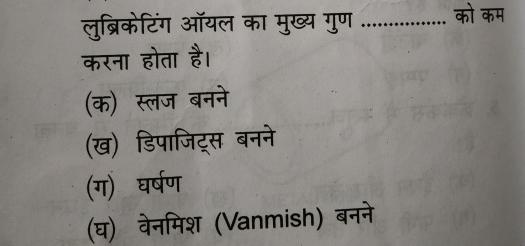 लुब्रिकेटिंग ऑयल का मुख्य गुण ................ को कम
करना होता है।
(क) स्लज बनने
(ख) डिपाजिट्स बनने
(ग) घर्षण
(घ) वेनमिश (Vanmish) बनने